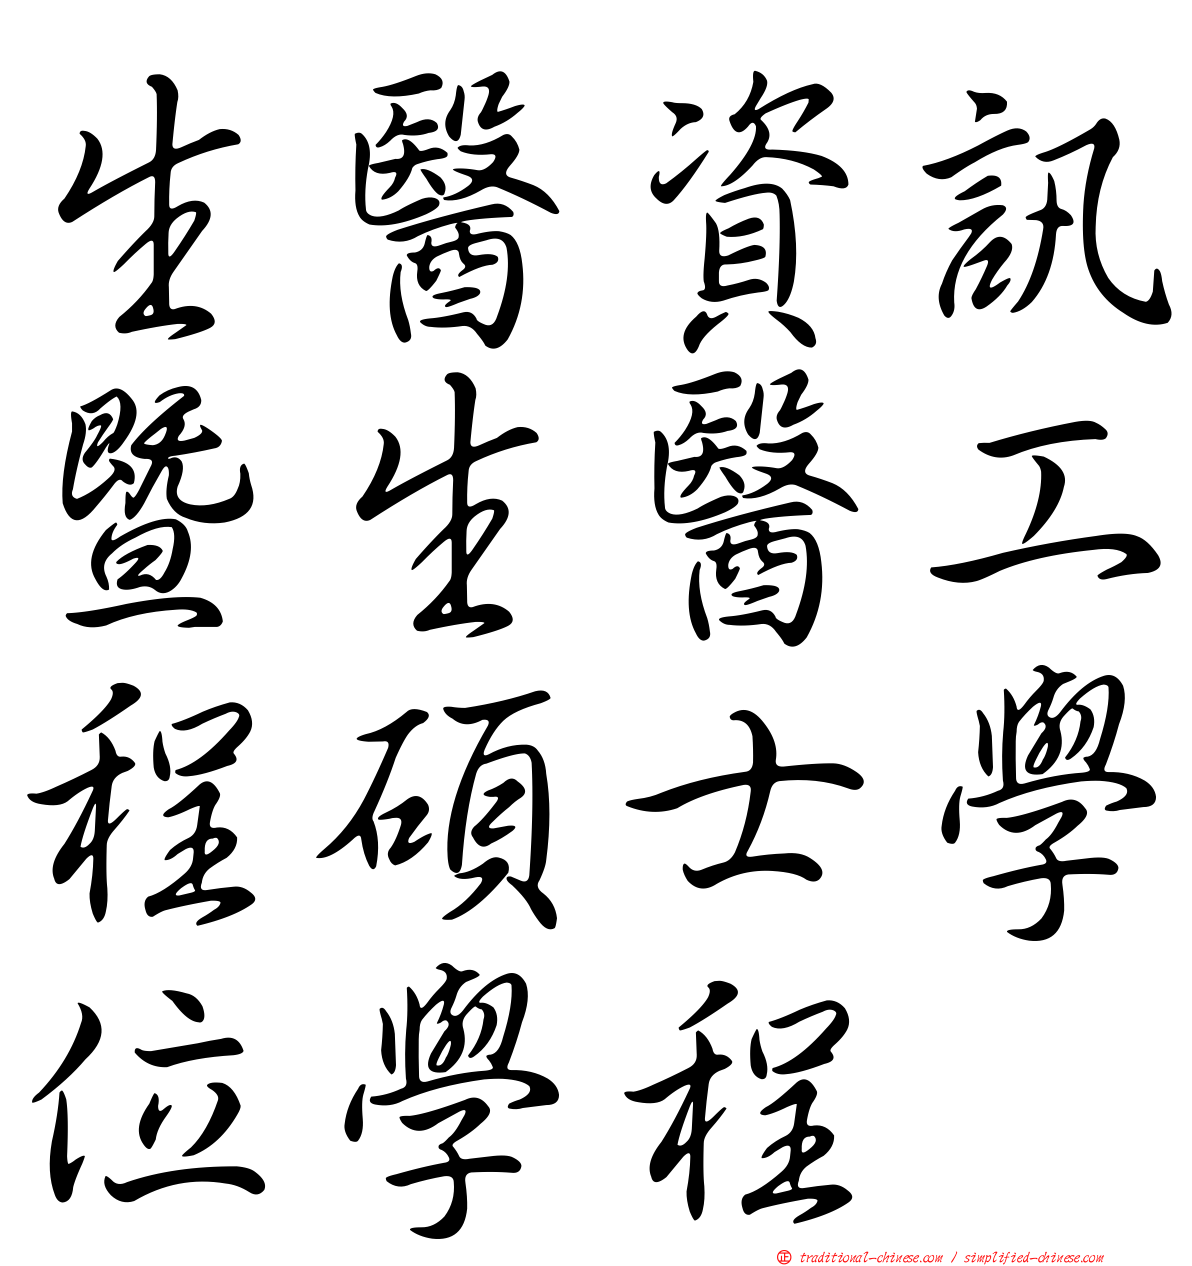 生醫資訊
暨生醫工
程碩士學
位學程
正 traditional-chinese.com / simplified-chinese.com